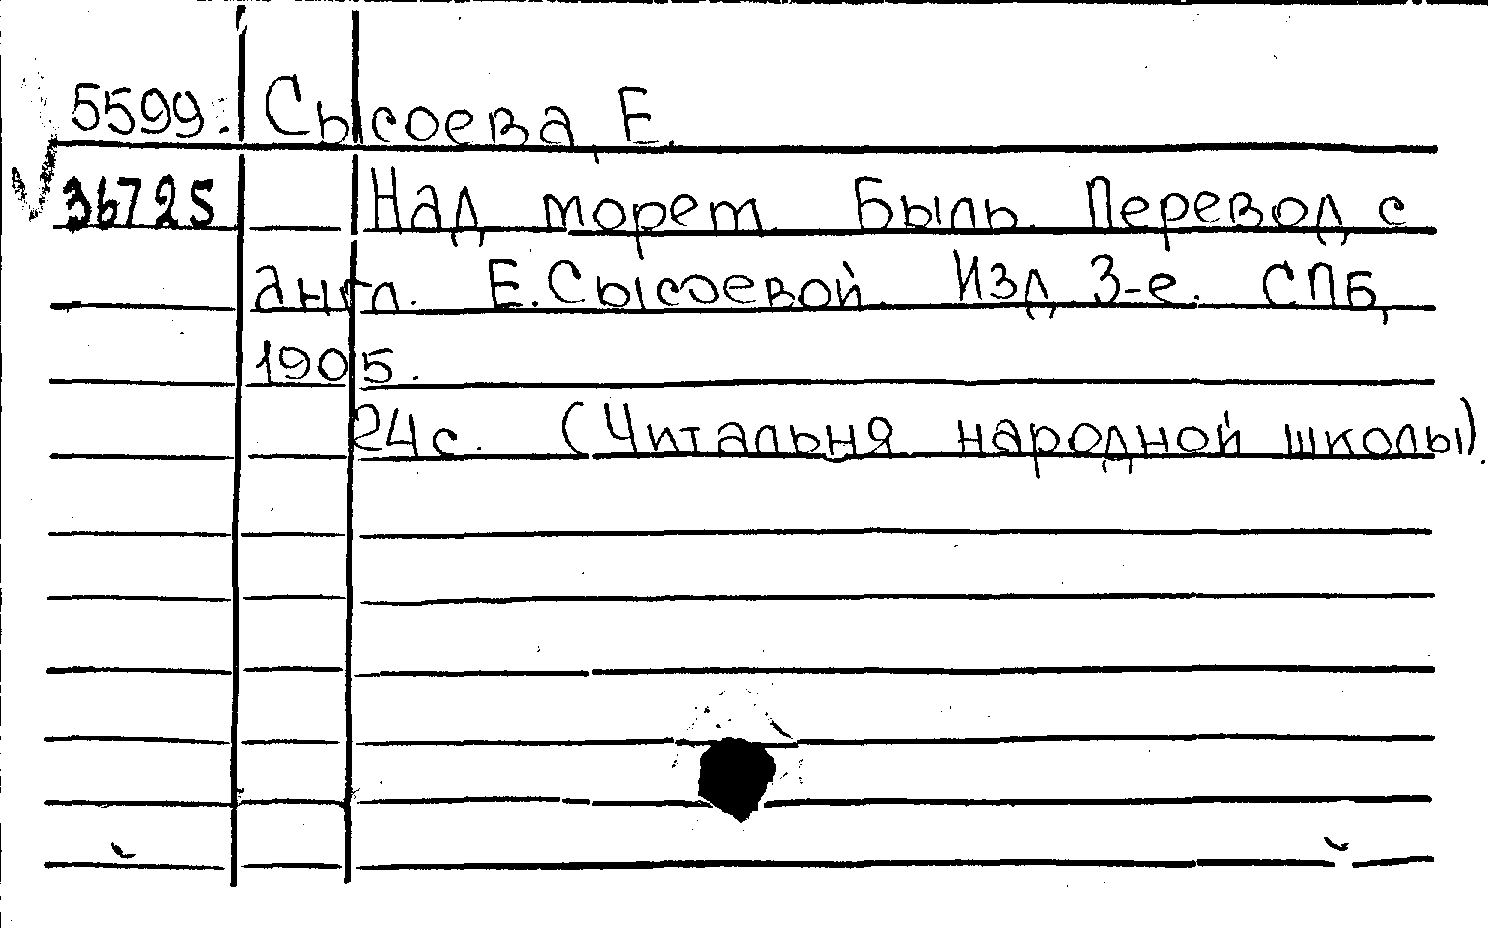 5599. Сысоева, Е.
36725 Над морем. Быль. Перевод с
англ. Е. Сысоевой. Изд. 3-е. СПБ,
1905.
24с. (Читальня народной школы).